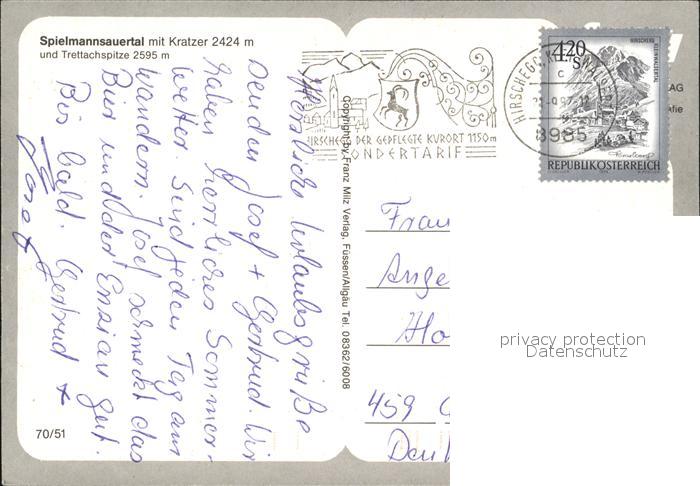 Spielmannsauertal mit Kratzer 2424 m
und Trettachspitze 2595 m
Herzliche Urlaubsgrüße
senden Josef + Gertrud. Wir
haben herrliches Sommer-
wetter. Sind jeden Tag am
wandern. Josef schmeckt das
Bier und der Enzian gut.
Bis bald. Gertrud +
Josef
70/51
Copyright by Franz Milz Verlag, Füssen/Allgäu Tel. 08362/6008
HIRSCHEGG DER GEPFLEGTE KURORT 1150m
SONDERTARIF
HIRSCHEGG, KL
c
8985
4.20
S
HIRSCHEGG
KLEINWALSERTAL
REPUBLIK ÖSTERREICH
AG
afie
Frau
Ange
Ho
459
Deu
privacy protection
Datenschutz